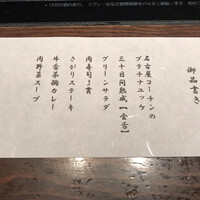 御品書き
名古屋コーチンの
プラチナユッケ
三十日間熟成【金舌】
グリーンサラダ
肉寿司3貫
さがりステーキ
牛香茶彌カレー
肉野菜スープ